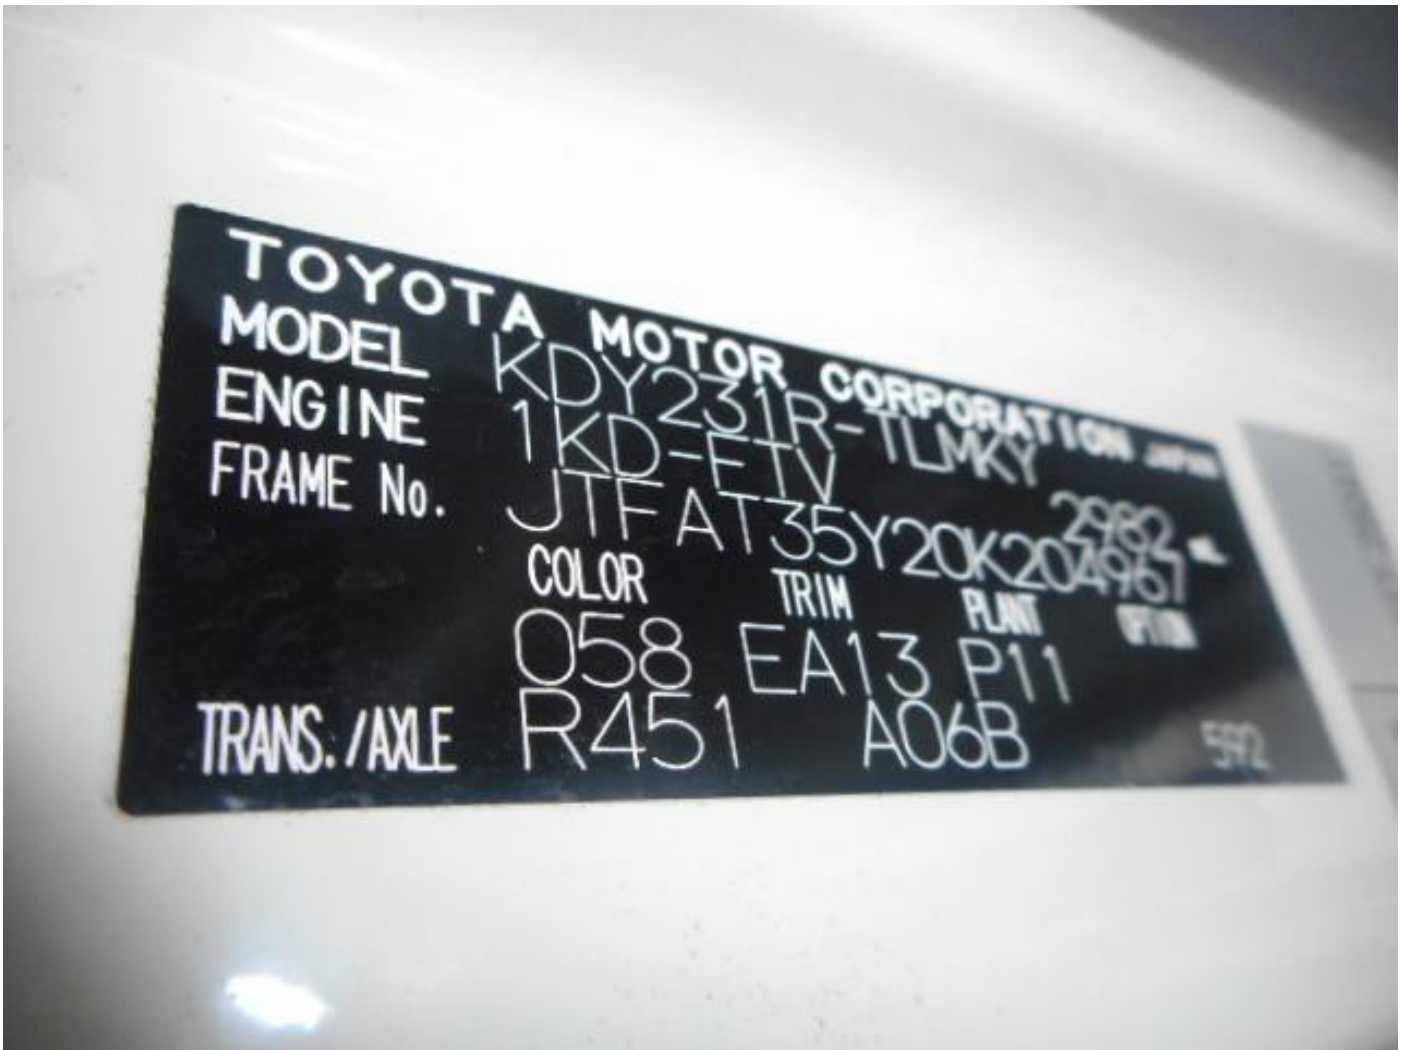 TOYOTA MOTOR CORPORATION JAPAN
MODEL KDY231R-TLMKY
ENGINE 1KD-FTV 2982 ML
FRAME No. JTFAT35Y20K204967
COLOR TRIM PLANT OPTION
058 EA13 P11
TRANS./AXLE R451 A06B 592